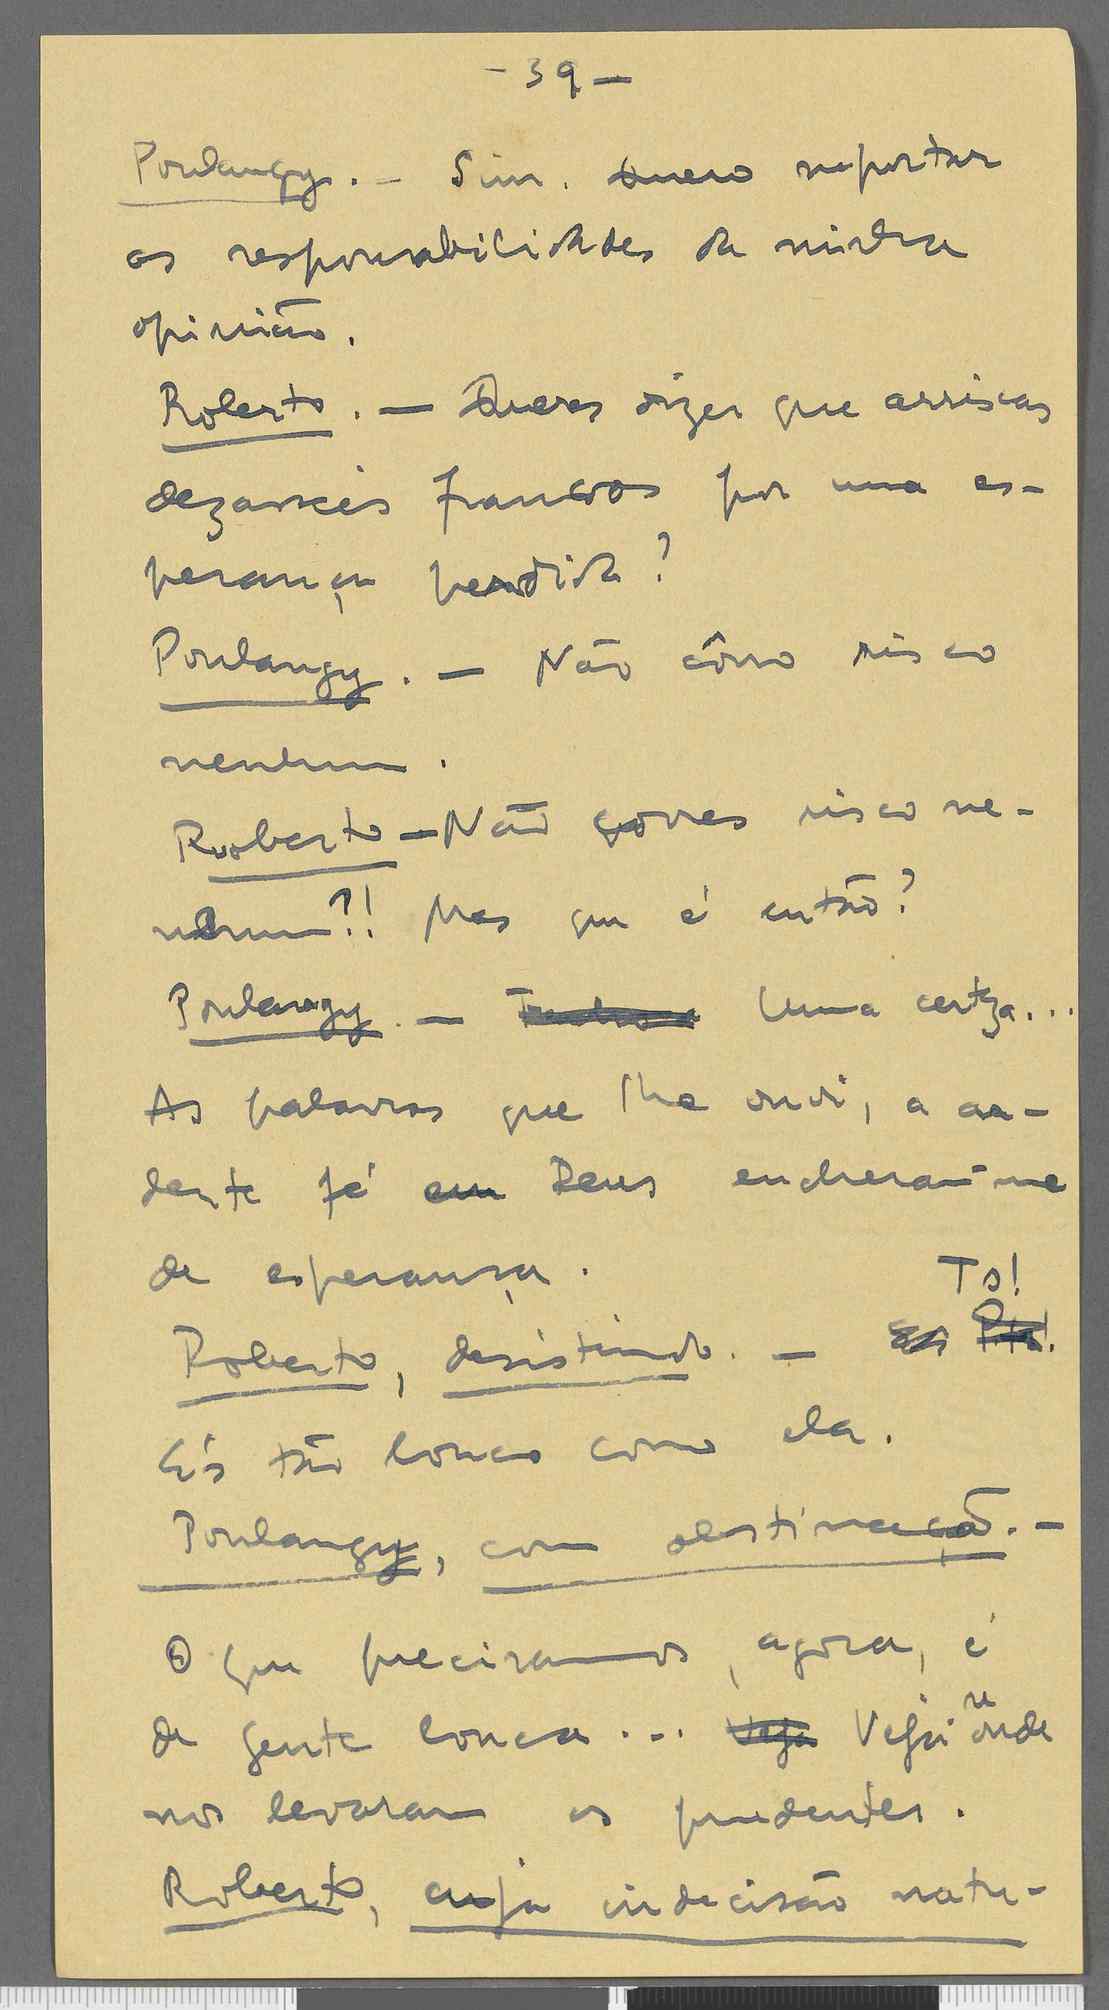 - 39 -
Poulangy. - Sim. Quero suportar
as responsabilidades da minha
opinião.
Roberto. - Queres dizer que arriscas
dezasseis francos por uma es-
perança perdida?
Poulangy. - Não côrro risco
nenhum.
Roberto - Não corres risco ne-
nhum?! Mas que é então?
Poulangy. - Tenho a Uma certeza...
As palavras que lhe ouvi, a ar-
dente fé em Deus encheram-me
de esperança.
To!
Roberto, desistindo. -
És tão louco como ela.
Poulangy, com obstinação. -
O que precisamos, agora, é
de gente louca... Veja Vejai onde
nos levaram os prudentes.
Roberto, cuja indecisão natu-